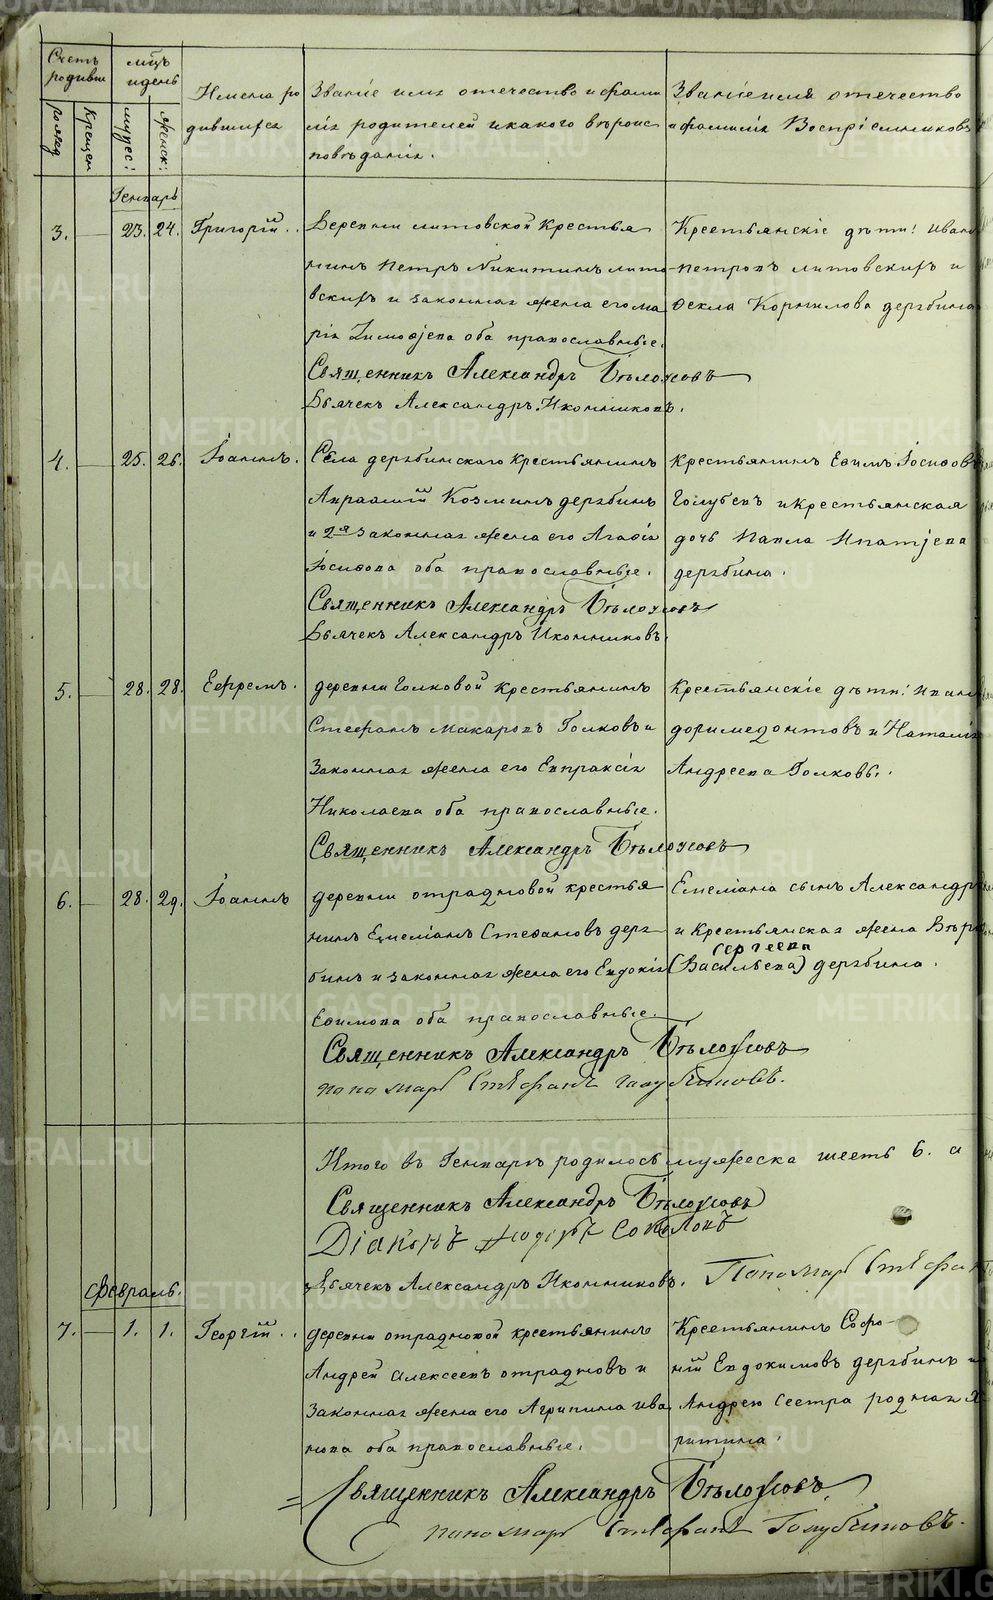 Счетъ родивш
мцъ и день
Имена ро
дившихся
Званіе имя отечество и фами
лія родителей и какого вѣроис
повѣданія.
Званіе имя отечество
и фамилія Воспріемниковъ
Генварь
3. 23. 24. Григорій.
Деревни литовской Крестья
нинъ Петръ Никитинъ лито
вскихъ и законная жена его Ма
рія Тимофѣева оба православные.
Священникъ Александръ Бѣлоусовъ
Дьячекъ Александръ Иконниковъ.
Крестьянскіе дѣти: Иванъ
Петровъ литовскихъ и
Ѳекла Корнилова дерябина
4. 25. 26. Іоаннъ.
Села дерябинскаго крестьянинъ
Авраамій Козминъ дерябинъ
и 2я законная жена его Агафія
Іосифова оба православные.
Священникъ Александръ Бѣлоусовъ
Дьячекъ Александръ Иконниковъ.
Крестьянинъ Ефимъ Іосифовъ
Голубевъ и крестьянская
дочь Павла Ипатіева
дерябина.
5. 28. 28. Ефремъ.
деревни Голковой Крестьянинъ
Стефанъ Макаровъ Голковъ и
Законная жена его Евпраксія
Николаева оба православные.
Священникъ Александръ Бѣлоусовъ
Крестьянскіе дѣти: Иванъ
доримедонтовъ и Наталія
Андреева Голковы.
6. 28. 29. Іоаннъ
деревни отрадновой крестья
нинъ Емеліанъ Стефановъ деря
бинъ и законная жена его Евдокія
Ефимова оба православные.
Священникъ Александръ Бѣлоусовъ
пономарь Стефанъ Голубчиковъ.
Емеліана сынъ Александръ
и Крестьянская жена Вѣра
Сергеева
(Васильева) дерябина.
Итого въ Генварѣ родилось мужеска шесть 6. а
Священникъ Александръ Бѣлоусовъ
Діаконъ Ѳедоръ Соколовъ
Дьячекъ Александръ Иконниковъ. Пономарь Стефан
Февраль.
7. 1. 1. Георгій.
деревни отрадновой крестьянинъ
Андрей Алексеевъ отрадновъ и
Законная жена его Агрипина Ива
нова оба православные.
Крестьянинъ Софо-
ній Евдокимовъ дерябинъ и
Андрею Сестра родная Ха
ритина.
Священникъ Александръ Бѣлоусовъ
пономарь Стефанъ Голубчиковъ.
METRIKI.GASO-URAL.RU